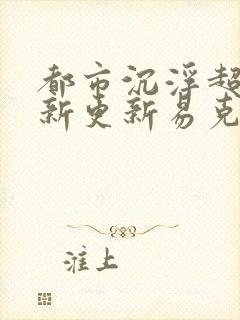 都市沉浮超
新更新易克
淮上